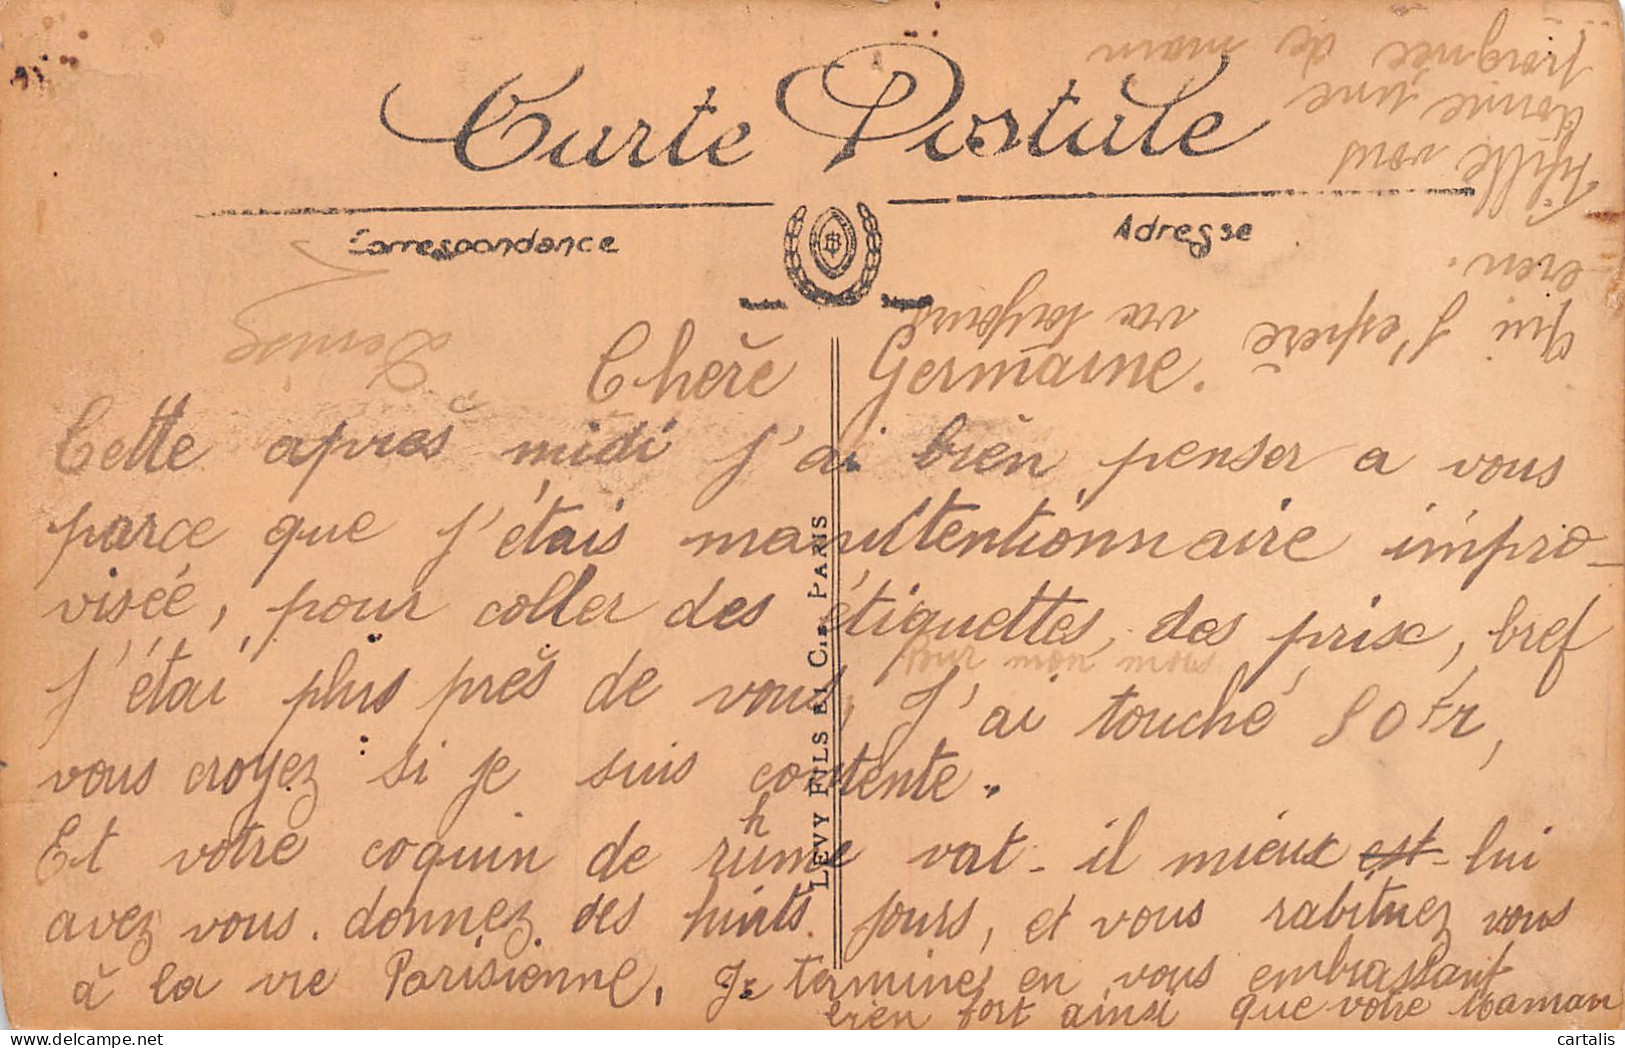 Carte Postale
Correspondance
Adresse
Chère Germaine.
Cette après midi j'ai bien penser a vous
parce que j'étais manuttentionnaire impro-
visée, pour coller des étiquettes, des prise, bref
j'étai plus près de vous, j'ai touché 80 fr,
pour mon mois
vous croyez si je suis contente.
Et votre coquin de rhume vat-il mieux est lui
avez vous donnez des huits jours, et vous rabituez vous
à la vie Parisienne, Je termine en vous embrassant
bien fort ainsi que votre maman
qui j'espère va toujours
bien.
vous
donne une
poignée de main
Denise
LEVY FILS ET Cie PARIS